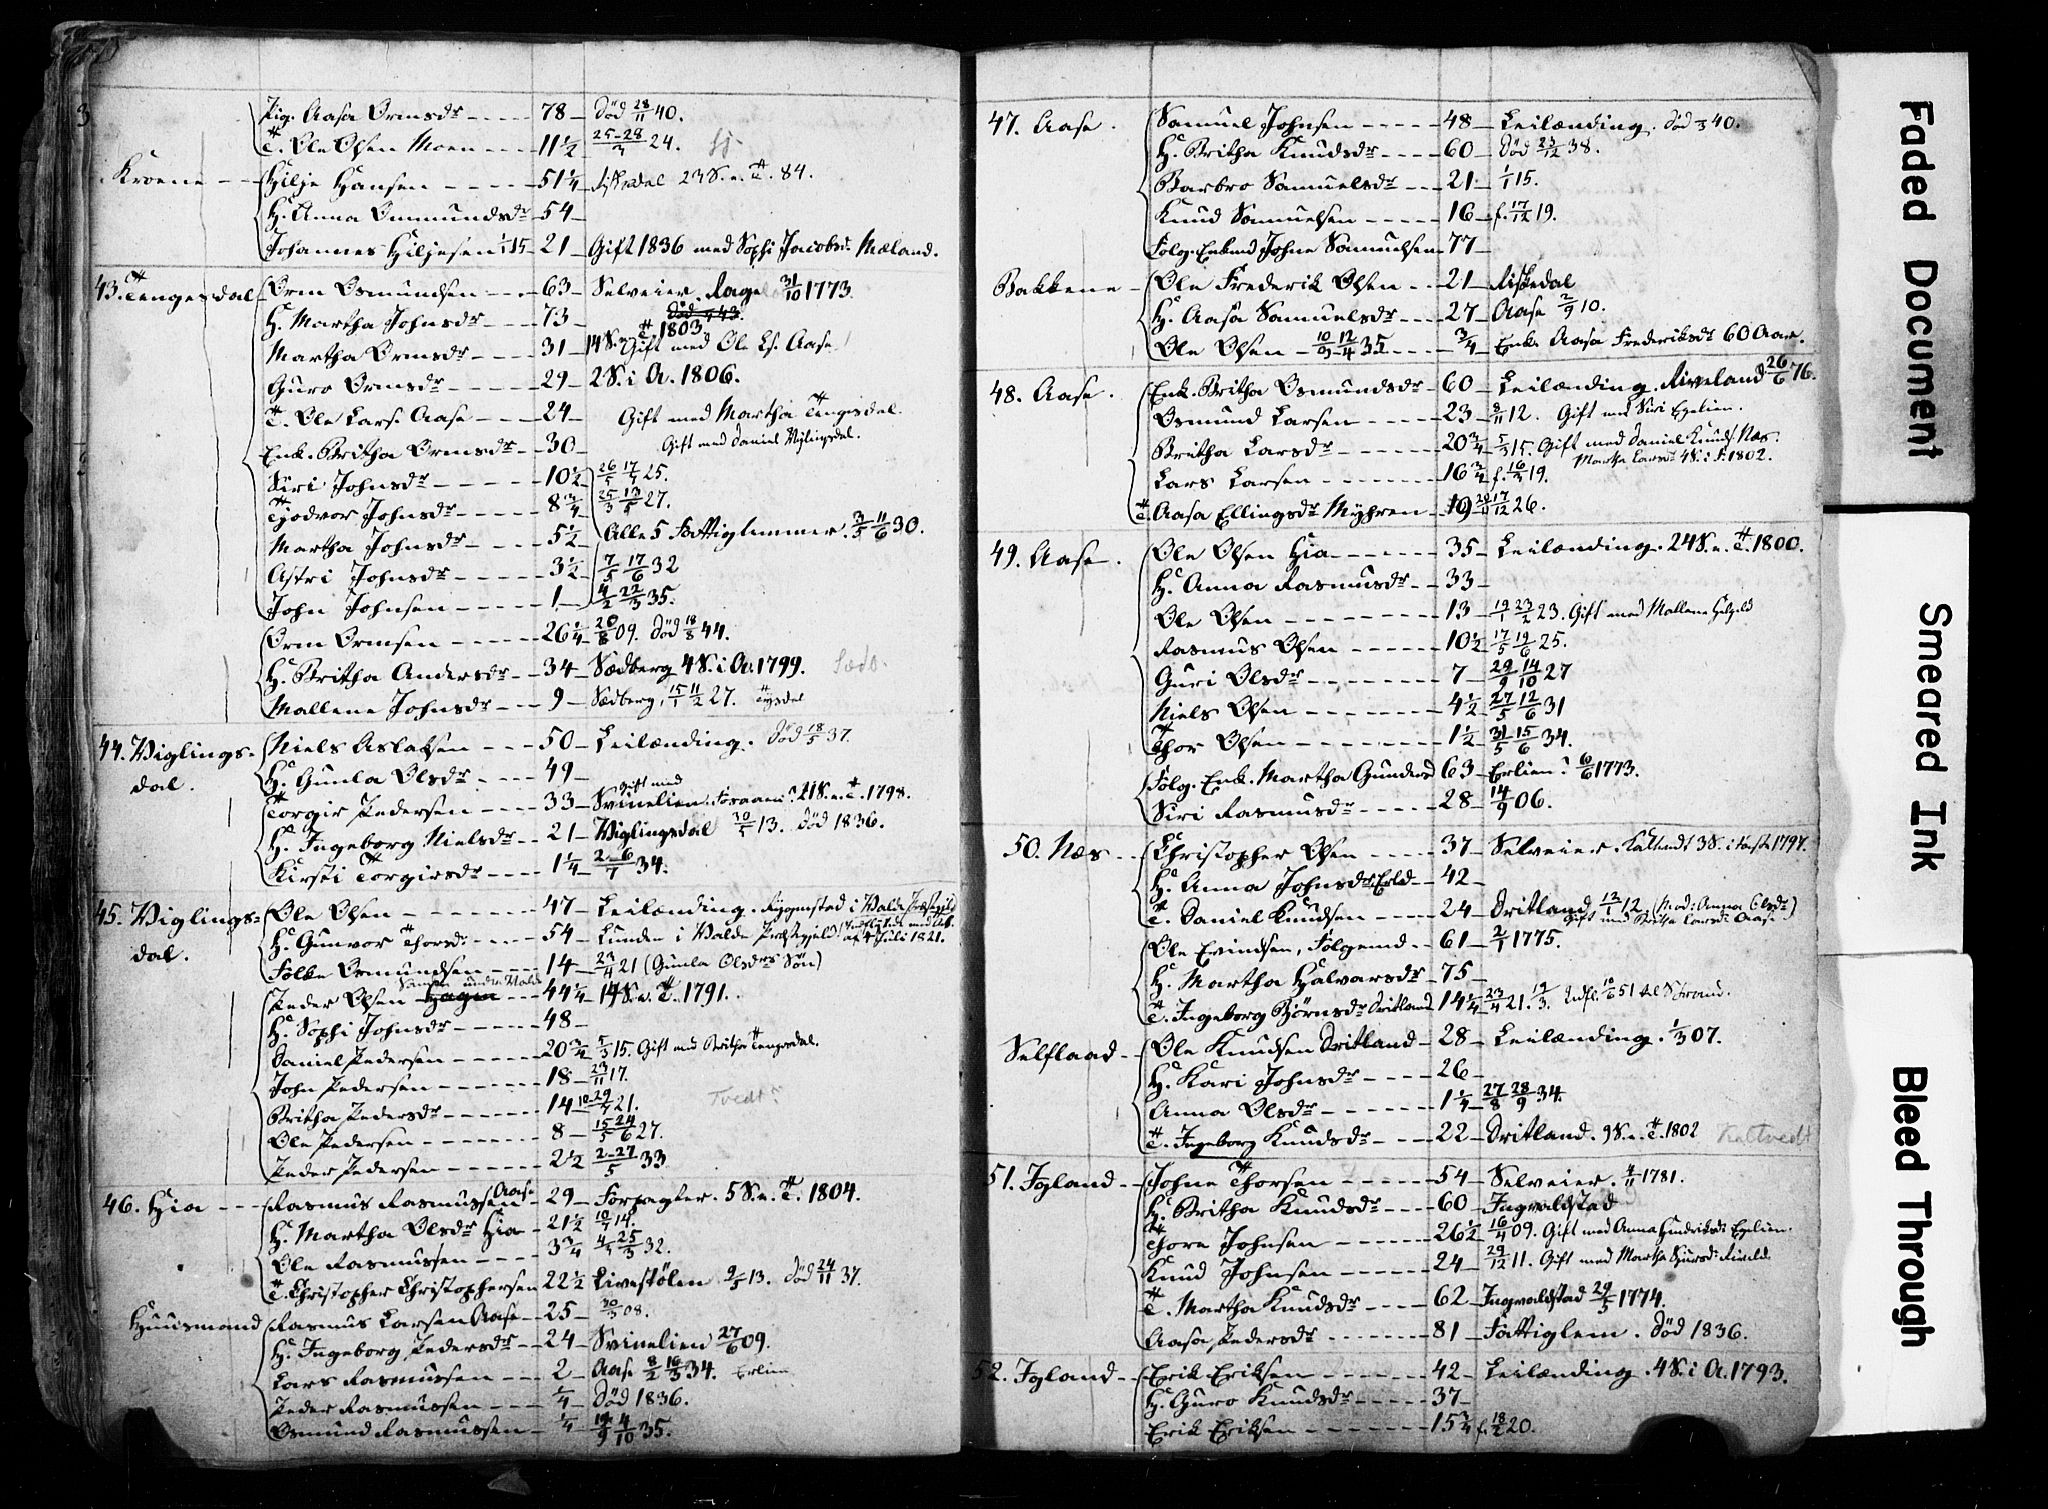 Pig. Aasa Ormsdr - - - - 78 - Død 28/11 40.
T. Ole Olsen Moen - - - 11 1/2 24.
Kroene - - Hilje Hansen - - - - 51 1/4 Fiskedal 23 S. e. T. 84.
H. Anna Ommundsdr - 54 -
Johannes Hiljesen 1/4 15 21 - Gift 1836 med Sophi Jacobsd. Mæland.
43. Tengesdal - Orm Osmundsen - - - 63 - Selveier. Rage 31/10 1773.
H. Martha Johnsdr - - - 73 -
T. 1803
Martha Ormsdr - - - - 31 - 14 S. Gift med Ole Ls. Aase
Guro Ormsdr - - - - - 29 - 2 S. i A. 1806.
T. Ole Lars. Aase - - - - 24 - Gift med Martha Tengesdal.
Enk. Britha Ormsdr - - 30 - Gift med Daniel Viglingsdal.
Siri Johnsdr - - - - - - 10 1/2 25.
Tjodvor Johnsdr - - - - - 8 3/4 27.
Martha Johnsdr - - - - 5 1/2 Alle 5 Fattiglemmer. 3/5 11/6 30.
Astri Johnsdr - - - - - 3 1/2 7/5 17/6 32
John Johnsen - - - - - 1 - 4/2 22/3 35.
Orm Ormsen - - - - - 26 1/4 20/8 09. Død 18/8 44.
H. Britha Andersdr - - - 34 - Sædberg 4 S. i A. 1799.
Mallene Johnsdr - - - 9 - Sædberg, 15/1 11/2 27. Tysdal
44. Viglings-
dal. Niels Aslaksen - - - 50 - Leilænding. Død 18/5 37.
H. Gunla Olsdr - - - - 49 -
Torgir Pedersen - - - - 33 - Svinelien. Gift med 21 S. e. T. 1798.
H. Ingeborg Nielsdr - - 21 - Viglingsdal 30/5 13. Død 1836.
Kirsti Torgirsdr - - - - 1 1/4 34.
45. Viglings-
dal. Ole Olsen - - - - - - - 47 - Leilænding. Rygmstad i Valde Præstgjeld
H. Gunvor Thorsdr - - - - 54 - Lunden i Valde Præstgjeld
af 4 Juli 1821.
Folke Osmundsen - - - 14 - 23/4 21 (Gunla Olsdrs Søn)
Peder Olsen - - - 44 1/4 14 S. e. T. 1791.
H. Sophi Johnsdr - - - - - 48 -
Daniel Pedersen - - - - - 20 3/4 5/3 15. Gift med Britha Tengesdal.
John Pedersen - - - - - - 18 - 23/11 17.
Britha Pedersdr - - - - - - 14 21. Tvedt
Ole Pedersen - - - - - - - 8 - 15/5 24/6 27.
Peder Pedersen - - - - - 2 1/2 2-27/5 33
46. Hia - - - Rasmus Rasmussen Aase - 29 - Forpagter. 5 S. e. T. 1804.
H. Martha Olsdr Hia - 21 1/2 14.
Ole Rasmussen - - - - 3 3/4 32.
T. Christopher Christophersen 22 1/2 Livestølen 13. Død 24/11 37.
Huusmand Rasmus Larsen Aase - 25 - 08.
H. Ingeborg Pedersdr - - 24 - Svinelien 27/6 09.
Lars Rasmussen - - - - 2 - Aase 8/2 16/3 34. Erlien
Peder Rasmussen - - - 1/4 - Død 1836.
Osmund Rasmussen - 1/4 - 35.
47. Aase. Samuel Johnsen - - - - - 48 - Leilænding. Død 40.
H. Britha Knudsdr - - - - 60 - Død 23/12 38.
Barbro Samuelsdr - - - 21 - 15.
Knud Samuelsen - - - - - 16 - f. 17/12 19.
Følg. Enkmd Johne Samuelsen - 77 -
Bakkene - Ole Frederik Olsen - - 21 - Fiskedal
H. Aasa Samuelsdr - - - 27 - Aase 2/9 10.
Ole Olsen - 12/4 35 - - - 3/4 - Enk. Aasa Frederiksdr 60 Aar.
48. Aase. Enk. Britha Osmundsdr - 60 - Leilænding. Riveland 26/6 76.
Osmund Larsen - - - - 23 - 12. Gift med Siri Egelien.
Britha Larsdr - - - - - - 20 3/4 5/3 15. Gift med Daniel Knuds. Næs.
Martha Larsdr 4 S. i F. 1802.
Lars Larsen - - - - - - 16 3/4 f. 19.
T. Aasa Ellingsdr Myhren - 19 17/12 26.
49. Aase. Ole Olsen Hia - - - - - - 35 - Leilænding. 24 S. e. T. 1800.
H. Anna Rasmusdr - - 33 -
Ole Olsen - - - - - - - - 13 - 19/1 23/2 23. Gift med Mallene
Rasmus Olsen - - - - - - 10 1/2 17/5 19/6 25.
Guri Olsdr - - - - - - - 7 - 29/9 14/10 27
Niels Olsen - - - - - - - 4 1/2 27/5 12/6 31
Thor Olsen - - - - - - - - 1 1/2 31/5 15/6 34.
Følg. Enk. Martha Gundersd 63 - Erlien? 6/6 1773.
Siri Rasmusdr - - - - - 28 - 14/9 06.
50. Næs - - Christopher Olsen - - - - - 37 - Selveier. 3 S. i Faste 1797.
H. Anna Johnsdr Erld - 42 -
T. Daniel Knudsen - - - - 24 - Dritland 13/1 12 (Mod: Anna Olsdr)
Gift med Britha Larsdr Aase
Ole Evindsen, Følgemd. - - 61 - 2/1 1775.
H. Martha Halvarsdr - 75 -
T. Ingeborg Bjørnsdr Dritland 14 1/4 23/4 21. Udfl. 51 til Strand.
Selflaad - - Ole Knudsen Dritland - 28 - Leilænding. 1/3 07.
H. Kari Johnsdr - - - - 26 -
Anna Olsdr - - - - - - - 1 1/4 27/8 28/9 34.
T. Ingeborg Knudsdr - - - 22 - Dritland. 9 S. e. T. 1802 Kaltvedt
51. Igland - - Johne Thorsen - - - - - - 54 - Selveier. 4/11 1781.
H. Britha Knudsdr - - - 60 - Ingvaldstad
Tore Johnsen - - - - - - 26 1/2 16/4 09. Gift med Anna Hendriksdr Egelien.
Knud Johnsen - - - - - - 24 - 29/12 11. Gift med Martha
T. Martha Knudsdr - - - - 62 - Ingvaldstad 29/5 1774.
Aasa Pedersdr - - - - - - - 81 - Fattiglem. Død 1836.
52. Igland - - Erik Eriksen - - - - - - - 42 - Leilænding. 4 S. i A. 1793.
H. Guro Knudsdr - - - - 37 -
Erik Eriksen - - - - - - - 15 3/4 f. 20.
Faded Document
Smeared Ink
Bleed Through